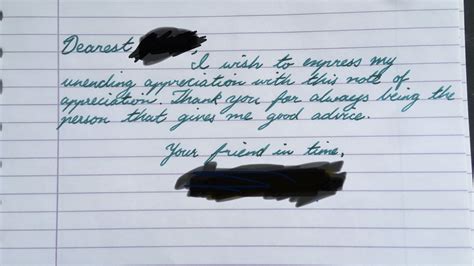 Dearest
I wish to express my
unending appreciation with this note of
appreciation. Thank you for always being the
person that gives me good advice.
Your friend in time,